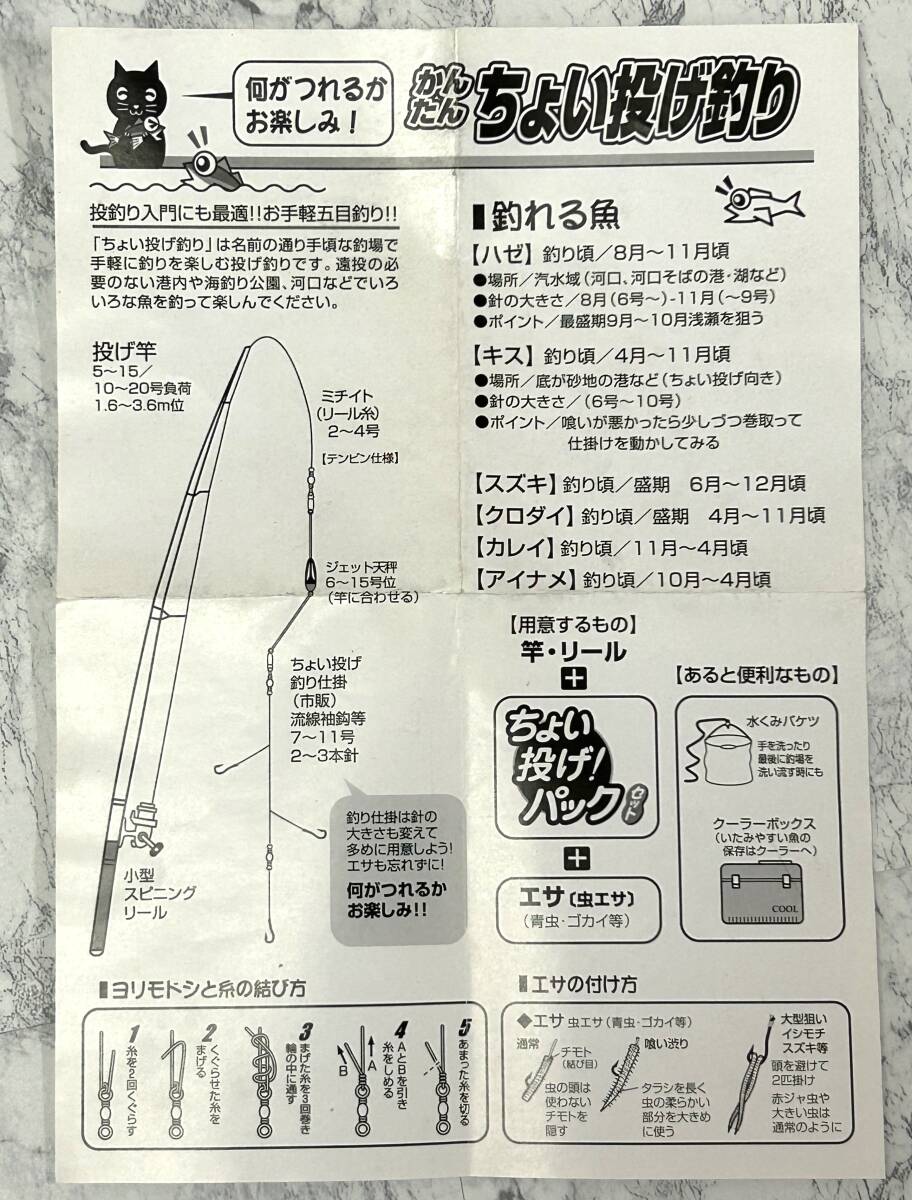 何がつれるか
お楽しみ！
かんたん ちょい投げ釣り
投釣り入門にも最適!!お手軽五目釣り!!
「ちょい投げ釣り」は名前の通り手頃な釣場で
手軽に釣りを楽しむ投げ釣りです。遠投の必
要のない港内や海釣り公園、河口などでいろ
いろな魚を釣って楽しんでください。
投げ竿
5～15／
10～20号負荷
1.6～3.6m位
ミチイト
（リール糸）
2～4号
【テンビン仕様】
ジェット天秤
6～15号位
（竿に合わせる）
ちょい投げ
釣り仕掛
（市販）
流線袖鈎等
7～11号
2～3本針
釣り仕掛は針の
大きさも変えて
多めに用意しよう!
エサも忘れずに!
何がつれるか
お楽しみ!!
小型
スピニング
リール
釣れる魚
【ハゼ】釣り頃／8月～11月頃
●場所／汽水域（河口、河口そばの港・湖など）
●針の大きさ／8月（6号～）-11月（～9号）
●ポイント／最盛期9月～10月浅瀬を狙う
【キス】釣り頃／4月～11月頃
●場所／底が砂地の港など（ちょい投げ向き）
●針の大きさ／（6号～10号）
●ポイント／喰いが悪かったら少しづつ巻取って
仕掛けを動かしてみる
【スズキ】釣り頃／盛期 6月～12月頃
【クロダイ】釣り頃／盛期 4月～11月頃
【カレイ】釣り頃／11月～4月頃
【アイナメ】釣り頃／10月～4月頃
【用意するもの】
竿・リール
+
ちょい
投げ!
パック
セット
+
エサ〔虫エサ〕
（青虫・ゴカイ等）
【あると便利なもの】
水くみバケツ
手を洗ったり
最後に釣場を
洗い流す時にも
クーラーボックス
（いたみやすい魚の
保存はクーラーへ）
COOL
ヨリモドシと糸の結び方
1
糸を2回くぐらす
2
くぐらせた糸を
まげる
3
まげた糸を3回巻き
輪の中に通す
4
AとBを引き
糸をしめる
A
B
5
あまった糸を切る
エサの付け方
◆エサ 虫エサ（青虫・ゴカイ等）
通常
チモト
（結び目）
虫の頭は
使わない
チモトを
隠す
喰い渋り
タラシを長く
虫の柔らかい
部分を大きめ
に使う
大型狙い
イシモチ
スズキ等
頭を避けて
2匹掛け
赤ジャ虫や
大きい虫は
通常のように